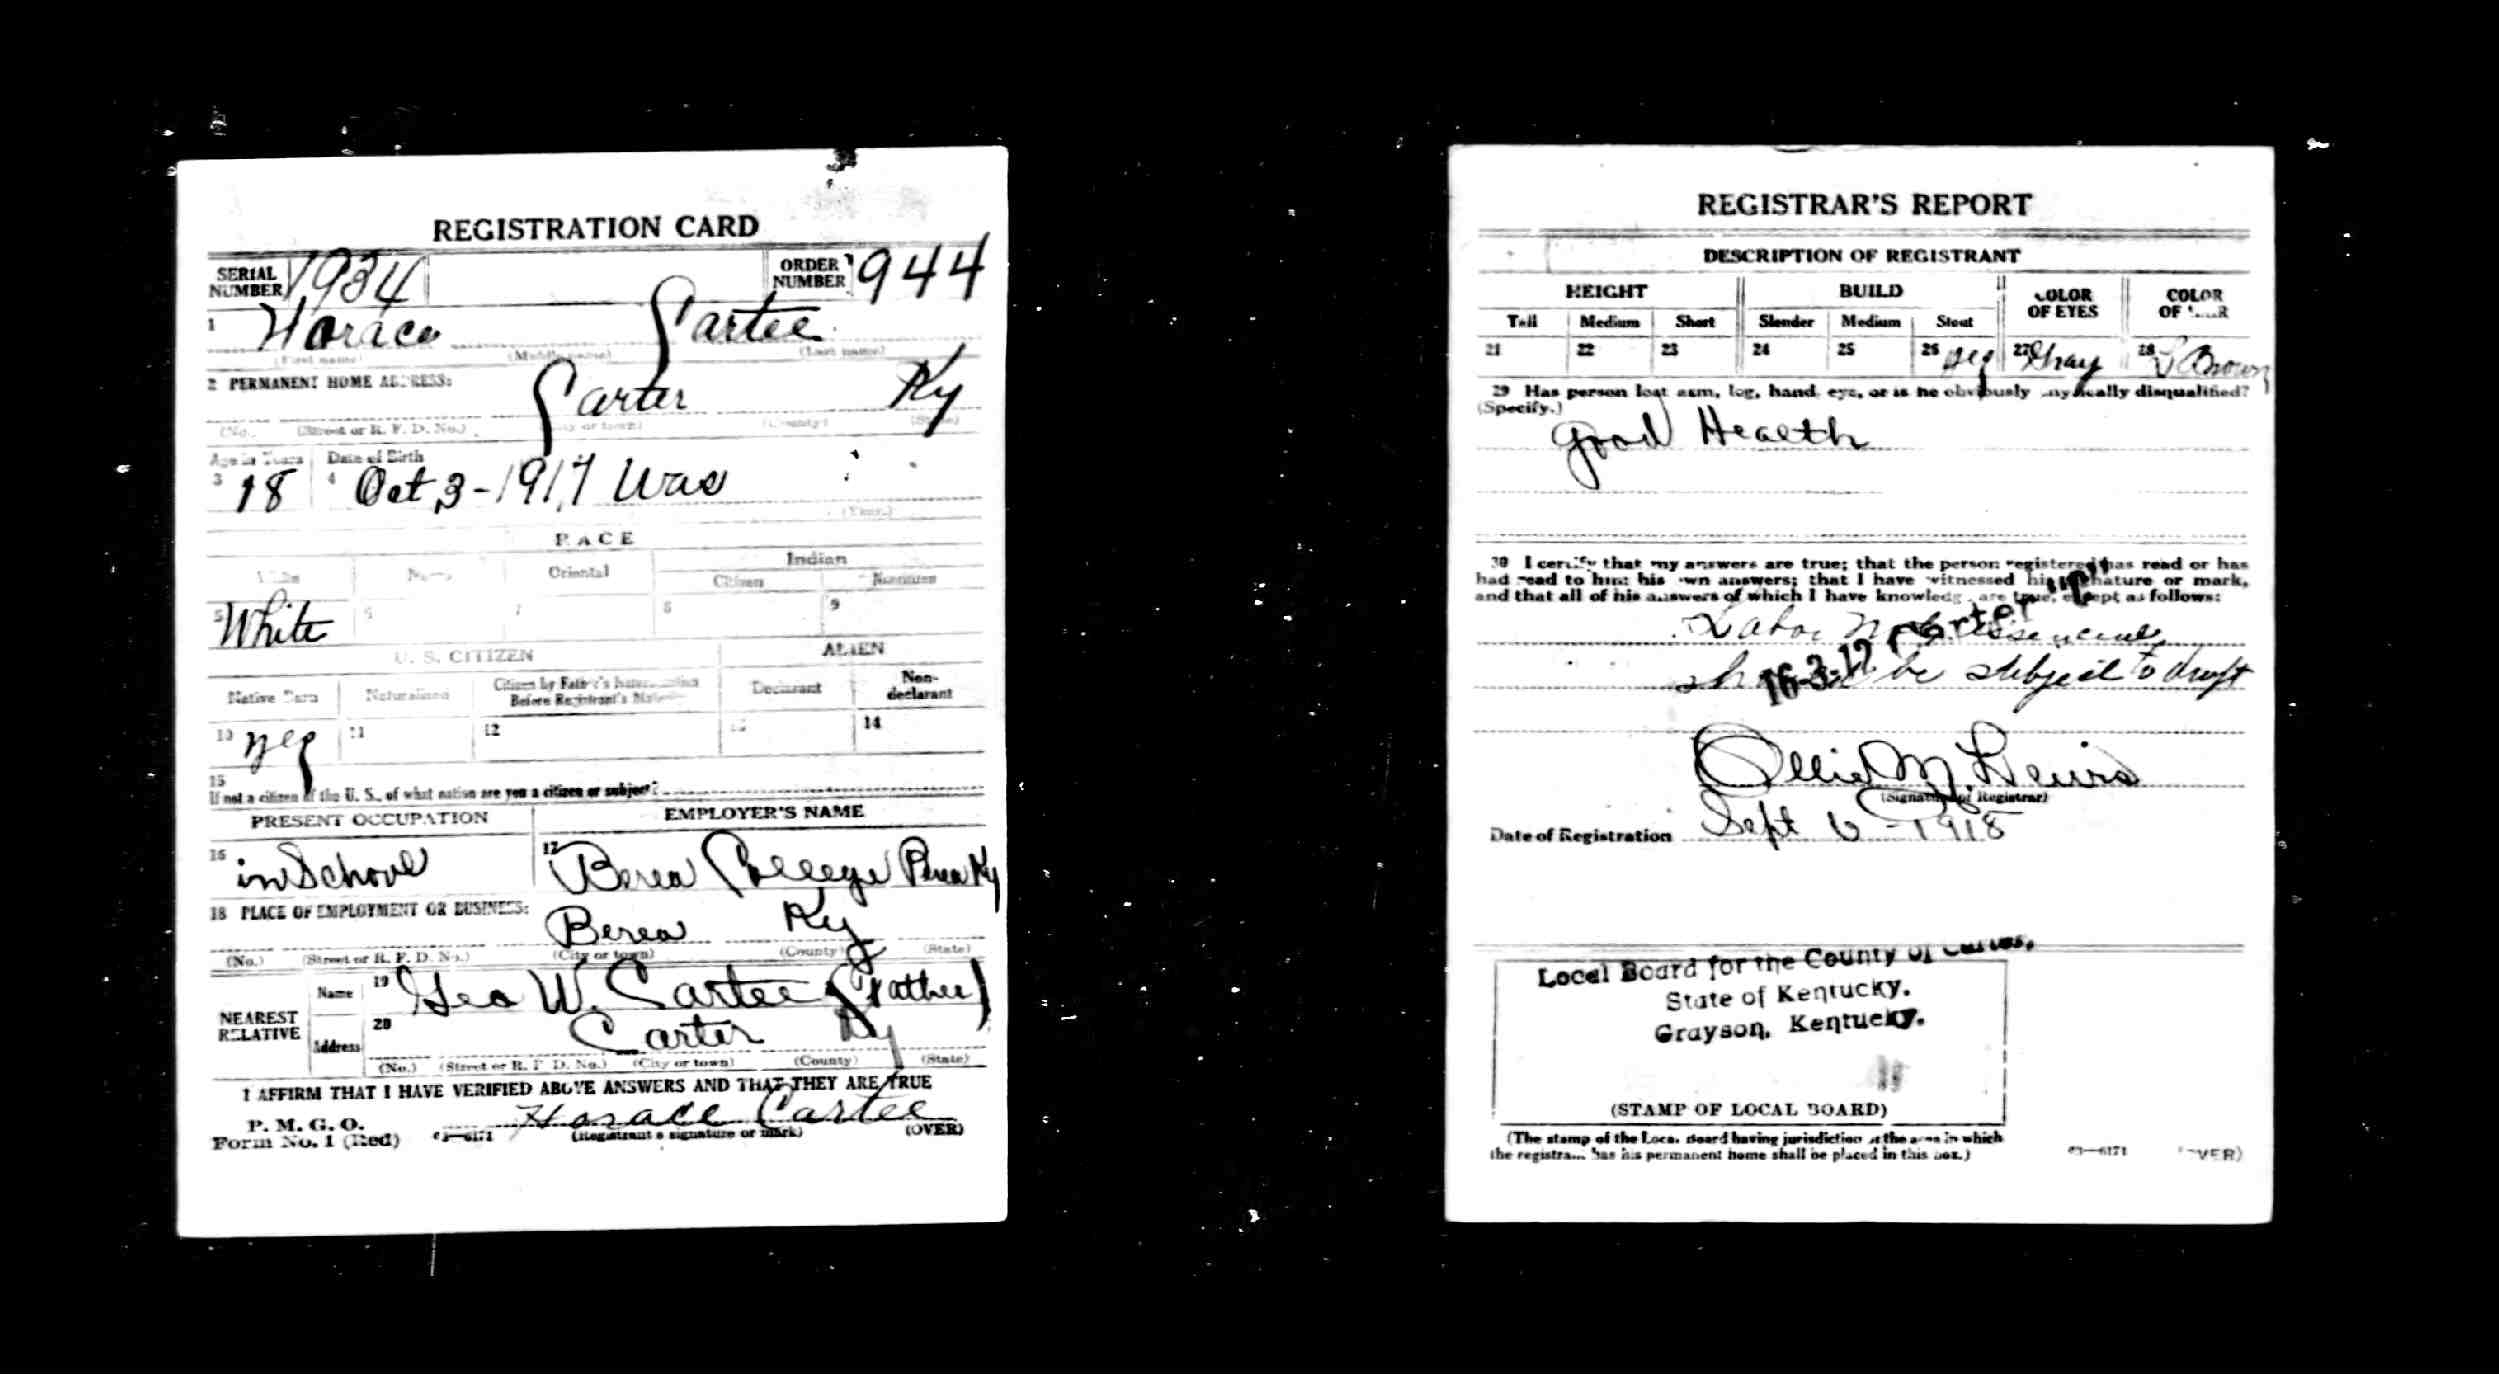 REGISTRATION CARD
SERIAL NUMBER 1934 ORDER NUMBER 944
1 Horace Cartee
(First name) (Middle name) (Last name)
2 PERMANENT HOME ADDRESS:
Carter Ky
(No.) (Street or R. F. D. No.) (City or town) (County) (State)
Age in Years Date of Birth
3 18 4 Oct 3-1917 Was
(Year.)
RACE
White Oriental Indian
Citizen Noncitizen
5 White 6 7 8 9
U. S. CITIZEN ALIEN
Native Born Naturalized Citizen by Father's Naturalization Before Registrant's Majority Declarant Non-declarant
10 yes 11 12 13 14
15
If not a citizen of the U. S., of what nation are you a citizen or subject?
PRESENT OCCUPATION EMPLOYER'S NAME
16 in School 17 Berea College Berea Ky
18 PLACE OF EMPLOYMENT OR BUSINESS:
Berea Ky
(No.) (Street or R. F. D. No.) (City or town) (County) (State)
NEAREST RELATIVE Name 19 Geo W. Cartee (Father)
Address 20 Carter Ky
(No.) (Street or R. F. D. No.) (City or town) (County) (State)
I AFFIRM THAT I HAVE VERIFIED ABOVE ANSWERS AND THAT THEY ARE TRUE
P. M. G. O.
Form No. 1 (Red) 03—6171 Horace Cartee
(Registrant's signature or mark) (OVER)
REGISTRAR'S REPORT
DESCRIPTION OF REGISTRANT
HEIGHT BUILD COLOR OF EYES COLOR OF HAIR
Tall Medium Short Slender Medium Stout
21 22 23 24 25 26 yes 27 Gray 28 Brown
29 Has person lost arm, leg, hand, eye, or is he obviously physically disqualified?
(Specify.)
Good Health
30 I certify that my answers are true; that the person registered has read or has
had read to him his own answers; that I have witnessed his signature or mark,
and that all of his answers of which I have knowledge are true, except as follows:
Labor
be subject to draft
16-3-12 Carter "C"
Ollie M. Lewis
(Signature of Registrar)
Date of Registration Sept 6 - 1918
Local Board for the County of Carter,
State of Kentucky.
Grayson, Kentucky.
(STAMP OF LOCAL BOARD)
(The stamp of the Local Board having jurisdiction of the area in which
the registrant has his permanent home shall be placed in this box.)
03—6171 (OVER)